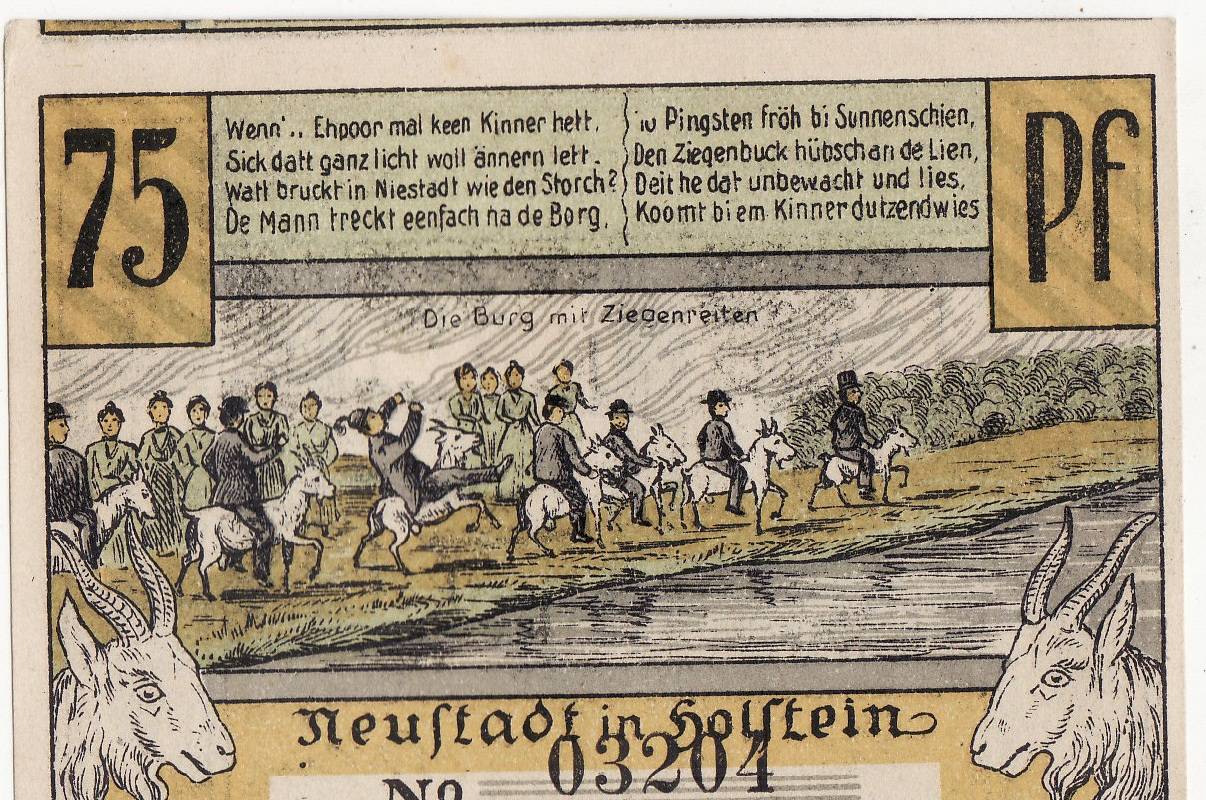 75
Wenn' .. Ehpoor mal keen Kinner hett,
Sick datt ganz licht woll ännern lett.
Watt bruckt in Niestadt wie den Storch?
De Mann treckt eenfach na de Borg,
Pingsten fröh bi Sunnenschien,
Den Ziegenbuck hübsch an de Lien,
Deit he dat unbewacht und lies,
Koomt bi em Kinner dutzendwies
Pf
Die Burg mit Ziegenreiten
Neustadt in Holstein
03204
No